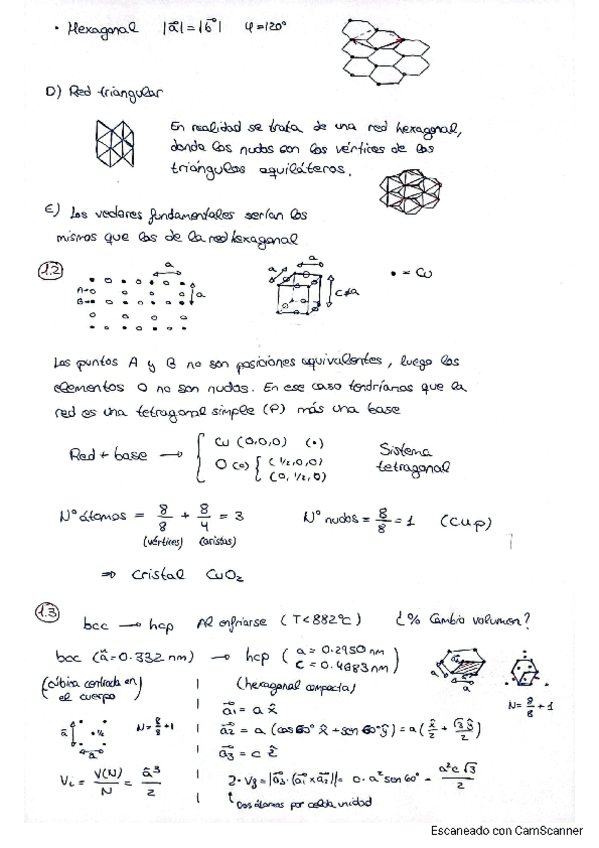 • Hexagonal |a⃗| = |b⃗| φ = 120°
D) Red triangular
En realidad se trata de una red hexagonal,
donde los nudos son los vértices de los
triángulos equiláteros.
E) Los vectores fundamentales serían los
mismos que los de la red hexagonal
1.2
a
A→
B→
a
a
a
c≠a
• = Cu
Los puntos A y B no son posiciones equivalentes, luego los
elementos O no son nudos. En ese caso tendríamos que la
red es una tetragonal simple (P) más una base
Red + base → { Cu (0,0,0) (•)
O (o) { (1/2,0,0)
(0,1/2,0)
Sistema
tetragonal
Nº átomos = 8/8 + 8/4 = 3
(vértices) (aristas)
Nº nudos = 8/8 = 1 (c.u.p)
⇒ Cristal CuO₂
1.3
bcc → hcp Al enfriarse (T<882ºC) ¿% Cambio volumen?
bcc (ã = 0.332 nm) → hcp ( a = 0.2950 nm
c = 0.4683 nm )
(cúbica centrada en
el cuerpo)
(hexagonal compacta)
N = 8/8 + 1
ã
ã
N = 8/8 + 1
a⃗₁ = a x̂
a⃗₂ = a (cos 60° x̂ + sen 60° ŷ) = a (x̂/2 + √3 ŷ/2)
a⃗₃ = c ẑ
Vᵢ = V(N)/N = ã³/2
Dos átomos por celda unidad
Escaneado con CamScanner